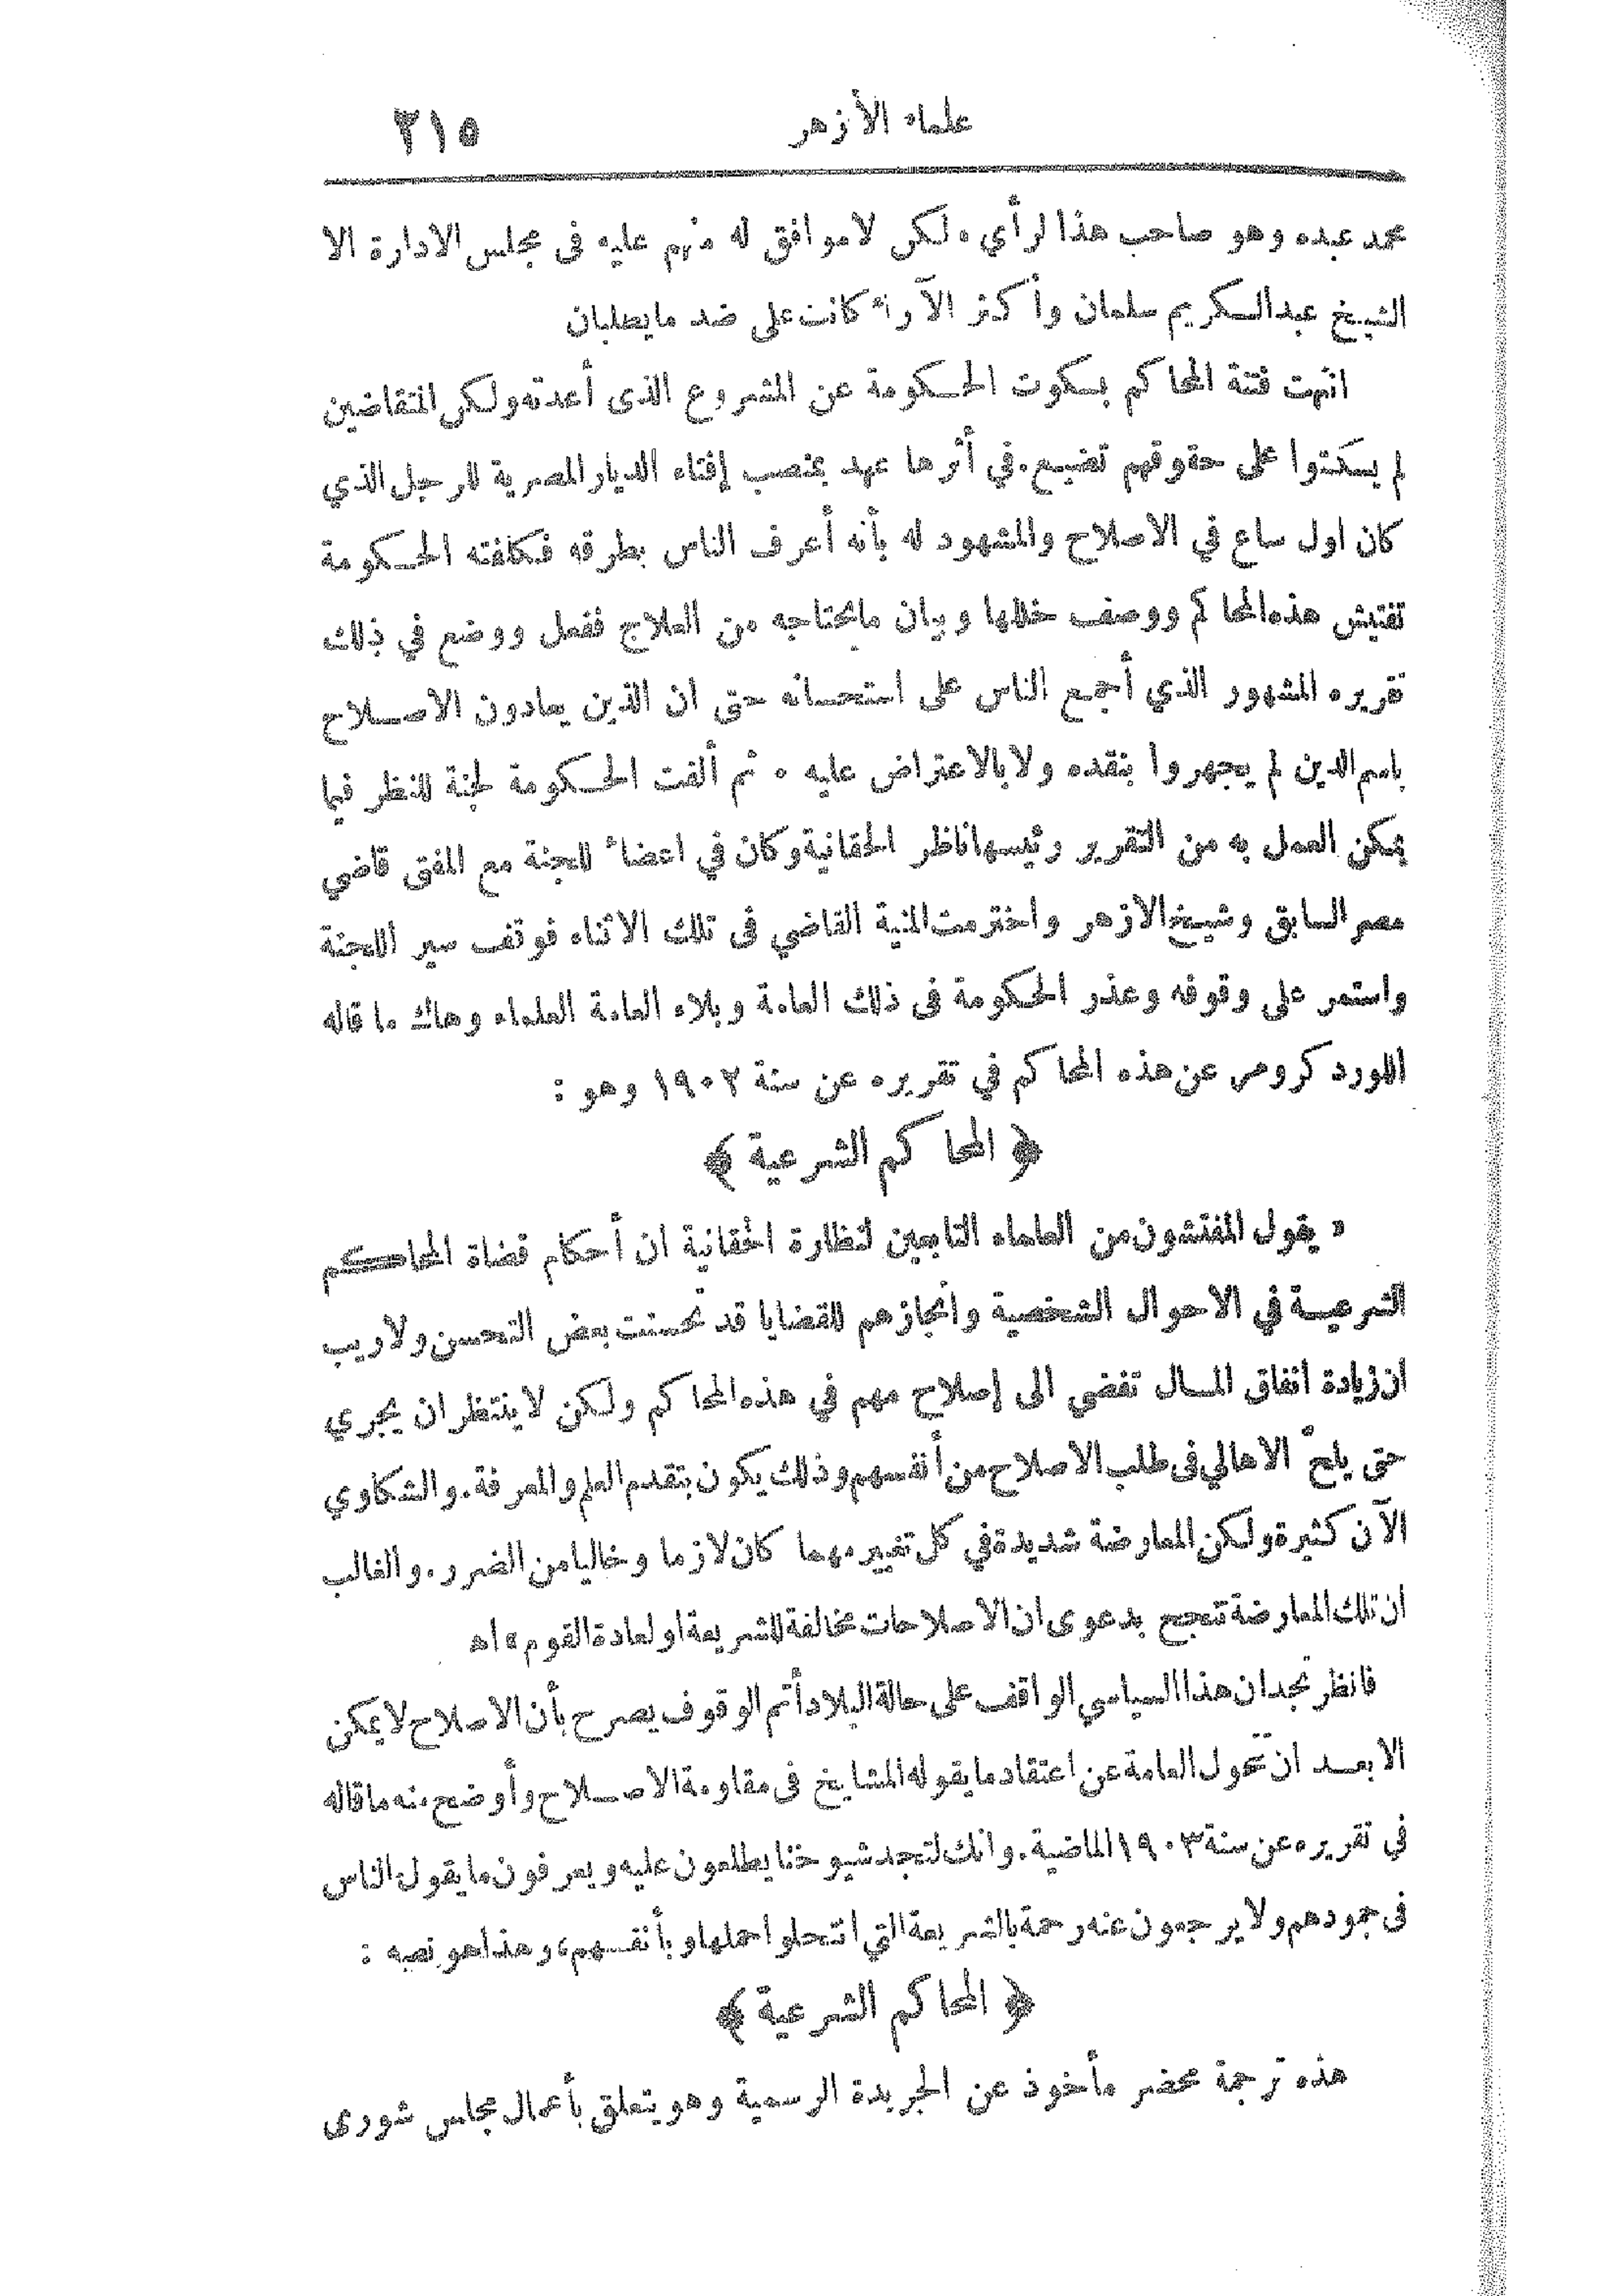 علماء الأزهر ٣١٥
محمد عبده وهو صاحب هذا لرأي ٠ لكن لا موافق له منهم عليه فى مجلس الادارة الا
الشيخ عبد الكريم سلمان وأكثر الآراء كانت على ضد ما يطلبان
انتهت فتنة المحاكم بسكوت الحكومة عن المشروع الذى أعدته ولكن المتقاضين
لم يسكتوا على حقوقهم تضيع . في أثرها عهد بمنصب إفتاء الديار المصرية للرجل الذي
كان اول ساع في الاصلاح والمشهود له بأنه أعرف الناس بطرقه فكلفته الحكومة
تفتيش هذه المحاكم ووصف خللها وبيان ما تحتاجه من العلاج ففعل ووضع في ذلك
تقريره المشهور الذي أجمع الناس على استحسانه حتى ان الذين يعادون الاصلاح
باسم الدين لم يجهروا بنقده ولا بالاعتراض عليه ٠ ثم ألفت الحكومة لجنة للنظر فيما
يمكن العمل به من التقرير رئيسها ناظر الحقانية وكان في اعضاء اللجنة مع المفتى قاضي
مصر السابق وشيخ الازهر واخترمت المنية القاضي فى تلك الاثناء فوقف سير اللجنة
واستمر على وقوفه وعذر الحكومة فى ذلك العامة وبلاء العامة العلماء وهاك ما قاله
اللورد كرومر عن هذه المحاكم في تقريره عن سنة ١٩٠٢ وهو :
﴿ المحاكم الشرعية ﴾
« يقول المفتشون من العلماء التابعين لنظارة الحقانية ان أحكام قضاة المحاكم
الشرعية في الاحوال الشخصية وانجازهم للقضايا قد تحسنت بعض التحسن ولا ريب
ان زيادة انفاق المال تفضي الى إصلاح مهم في هذه المحاكم ولكن لا ينتظر ان يجري
حتى يلحّ الاهالي فى طلب الاصلاح من أنفسهم وذلك يكون بتقدم العلم والمعرفة . والشكاوي
الآن كثيرة ولكن المعارضة شديدة في كل تغيير مهما كان لازما وخاليا من الضرر . والغالب
ان تلك المعارضة تنجح بدعوى ان الاصلاحات مخالفة للشريعة او لعادة القوم » اه
فانظر تجد ان هذا السياسي الواقف على حالة البلاد أتم الوقوف يصرح بأن الاصلاح لا يمكن
الا بعد ان تتحول العامة عن اعتقاد ما يقوله المشايخ فى مقاومة الاصلاح وأوضح منه ما قاله
في تقريره عن سنة ١٩٠٣ الماضية . وانك لتجد شيوخنا يطلعون عليه ويعرفون ما يقول الناس
فى جمودهم ولا يرجعون عنه رحمة بالشريعة التي انتحلوا حملها وبأنفسهم، وهذا هو نصه :
﴿ المحاكم الشرعية ﴾
هذه ترجمة محضر مأخوذ عن الجريدة الرسمية وهو يتعلق بأعمال مجلس شورى